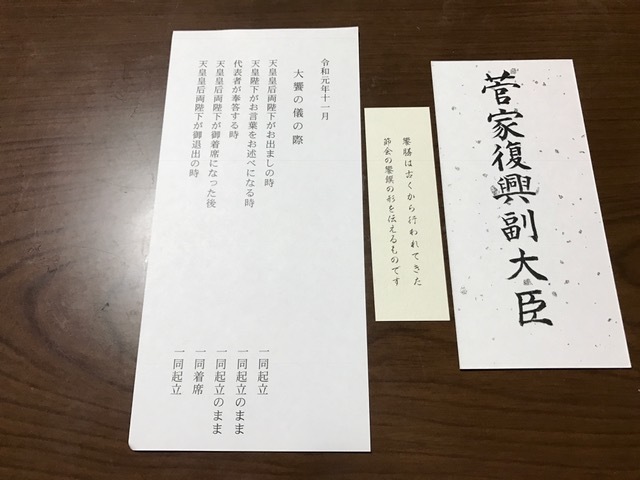 令和元年十一月
大饗の儀の際
天皇皇后両陛下がお出ましの時 一同起立
天皇陛下がお言葉をお述べになる時 一同起立のまま
代表者が奉答する時 一同起立のまま
天皇皇后両陛下が御着席になった後 一同着席
天皇皇后両陛下が御退出の時 一同起立
饗膳は古くから行われてきた
節会の饗饌の形を伝えるものです
菅家復興副大臣